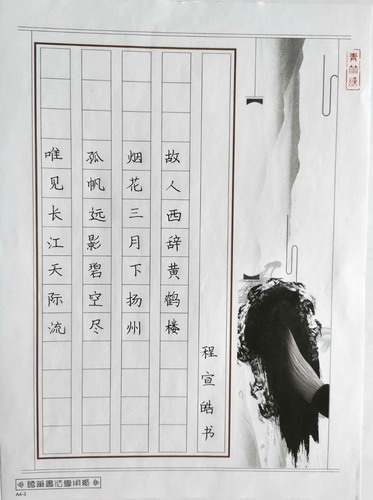 故人西辞黄鹤楼
烟花三月下扬州
孤帆远影碧空尽
唯见长江天际流
程宣皓书
A4-3